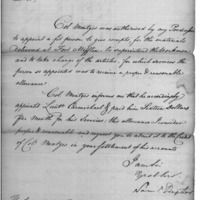 Col Mentges was authorised by my Predecessor
to appoint a fit person to give receipts for the materials
delivered at Fort Mifflin, to superintend the workmen
and to take charge of the articles, for which services the
person so appointed was to receive a proper & reasonable
allowance
Col Mentges informs me that he accordingly
appointed Lieut Carmichael & paid him Sixteen Dollars
per Month for his Services; this allowance I consider
proper & reasonable and request you to admit it to the Credit
of Col Mentges in your settlement of his accounts
I am Sir
Your Obt Ser